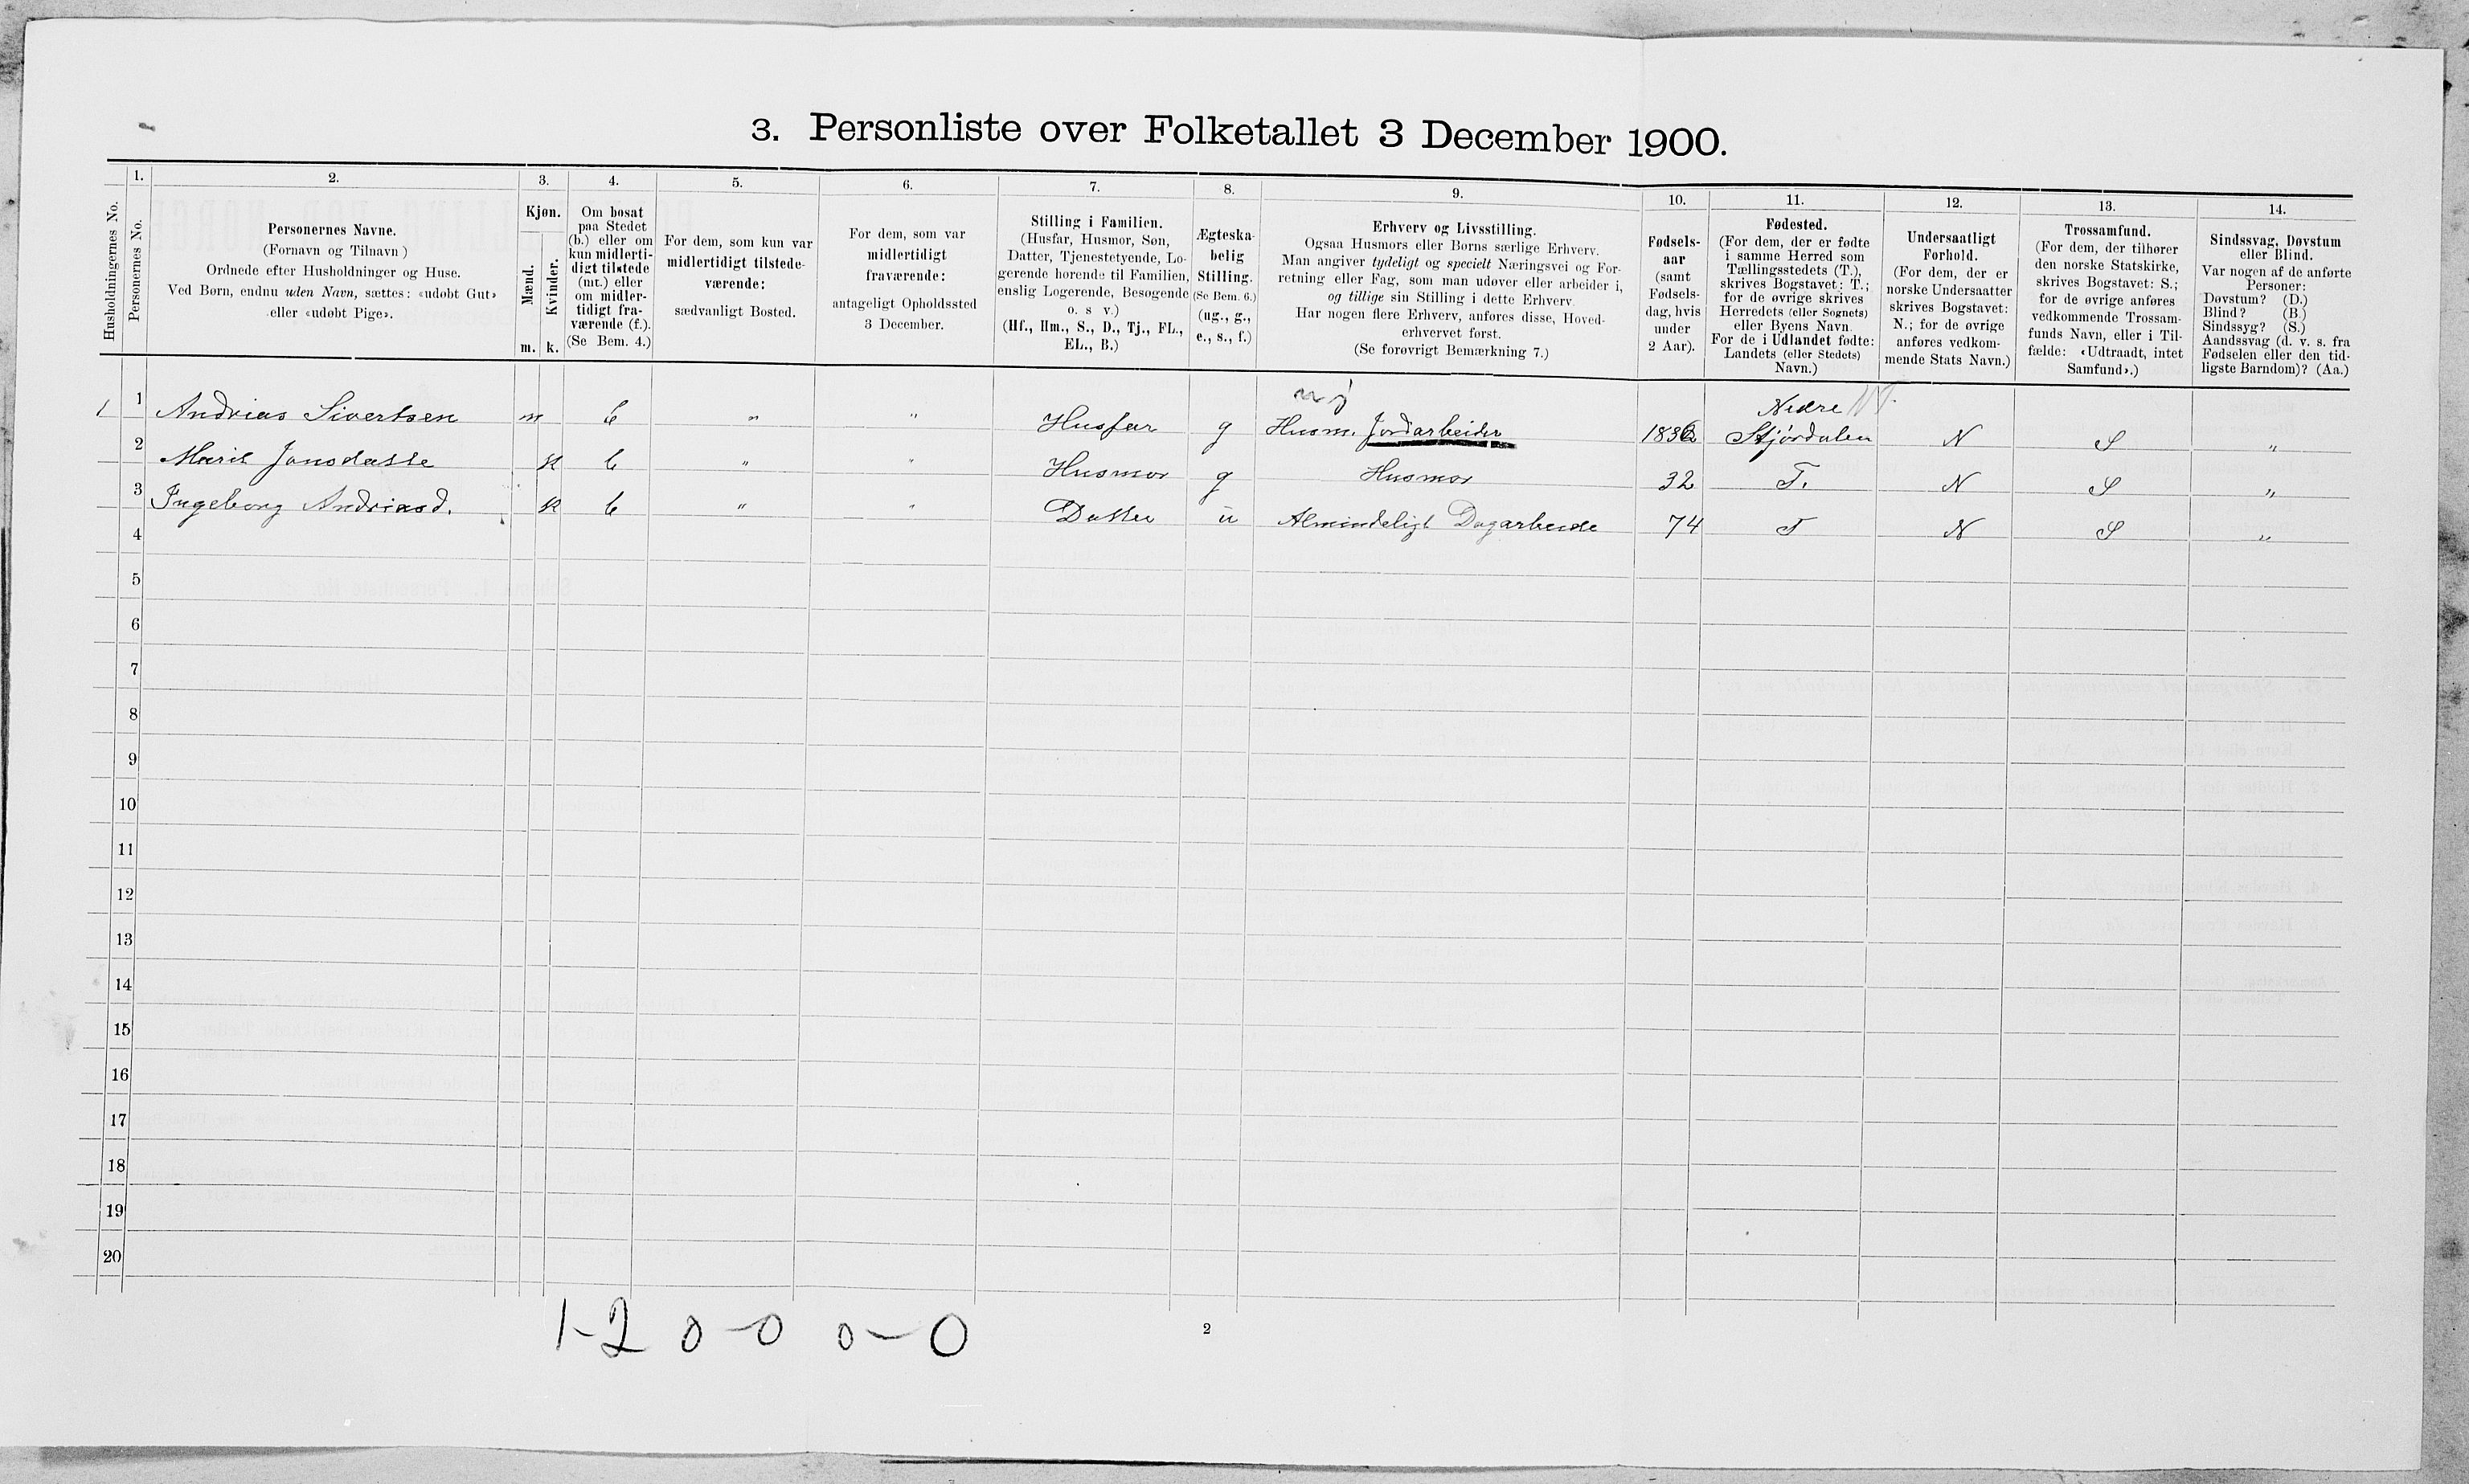 3. Personliste over Folketallet 3 December 1900.
Husholdningernes No.
1.
Personernes No.
2.
Personernes Navne.
(Fornavn og Tilnavn)
Ordnede efter Husholdninger og Huse.
Ved Børn, endnu uden Navn, sættes: «udøbt Gut»
eller «udøbt Pige».
3.
Kjøn.
Mænd.
Kvinder.
m. k.
4.
Om bosat
paa Stedet
(b.) eller om
kun midlerti-
digt tilstede
(mt.) eller
om midler-
tidigt fra-
værende (f.).
(Se Bem. 4.)
5.
For dem, som kun var
midlertidigt tilstede-
værende:
sædvanligt Bosted.
6.
For dem, som var
midlertidigt
fraværende:
antageligt Opholdssted
3 December.
7.
Stilling i Familien.
(Husfar, Husmor, Søn,
Datter, Tjenestetyende, Lo-
gerende hørende til Familien,
enslig Logerende, Besøgende
o. s v.)
(Hf., Hm., S., D., Tj., FL.,
EL., B.)
8.
Ægteska-
belig
Stilling.
(Se Bem. 6.)
(ug., g.,
e., s., f.)
9.
Erhverv og Livsstilling.
Ogsaa Husmors eller Børns særlige Erhverv.
Man angiver tydeligt og specielt Næringsvei og For-
retning eller Fag, som man udøver eller arbeider i,
og tillige sin Stilling i dette Erhverv.
Har nogen flere Erhverv, anføres disse, Hoved-
erhvervet først.
(Se forøvrigt Bemærkning 7.)
10.
Fødsels-
aar
(samt
Fødsels-
dag, hvis
under
2 Aar).
11.
Fødested.
(For dem, der er fødte
i samme Herred som
Tællingsstedets (T.),
skrives Bogstavet: T.;
for de øvrige skrives
Herredets (eller Sognets)
eller Byens Navn.
For de i Udlandet fødte:
Landets (eller Stedets)
Navn.)
12.
Undersaatligt
Forhold.
(For dem, der er
norske Undersaatter
skrives Bogstavet:
N.; for de øvrige
anføres vedkom-
mende Stats Navn.)
13.
Trossamfund.
(For dem, der tilhører
den norske Statskirke,
skrives Bogstavet: S.;
for de øvrige anføres
vedkommende Trossam-
funds Navn, eller i Til-
fælde: «Udtraadt, intet
Samfund».)
14.
Sindssvag, Døvstum
eller Blind.
Var nogen af de anførte
Personer:
Døvstum? (D.)
Blind? (B.)
Sindssyg? (S.)
Aandssvag (d. v. s. fra
Fødselen eller den tid-
ligste Barndom)? (Aa.)
1 1 Andrias Sivertsen m b " " Husfar g Husm. Jordarbeider 1832 Nedre Stjørdalen N S "
2 Marit Jonsdatte k b " " Husmor g Husmor 32 T. N S "
3 Ingeborg Andriasd. k b " " Datter u Almindeligt Dagarbeide 74 T N S "
4
5
6
7
8
9
10
11
12
13
14
15
16
17
18
19
20
1-2 0-0 0-0
2